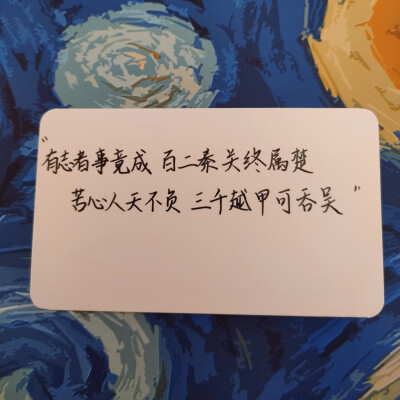 "有志者事竟成 百二秦关终属楚
苦心人天不负 三千越甲可吞吴"